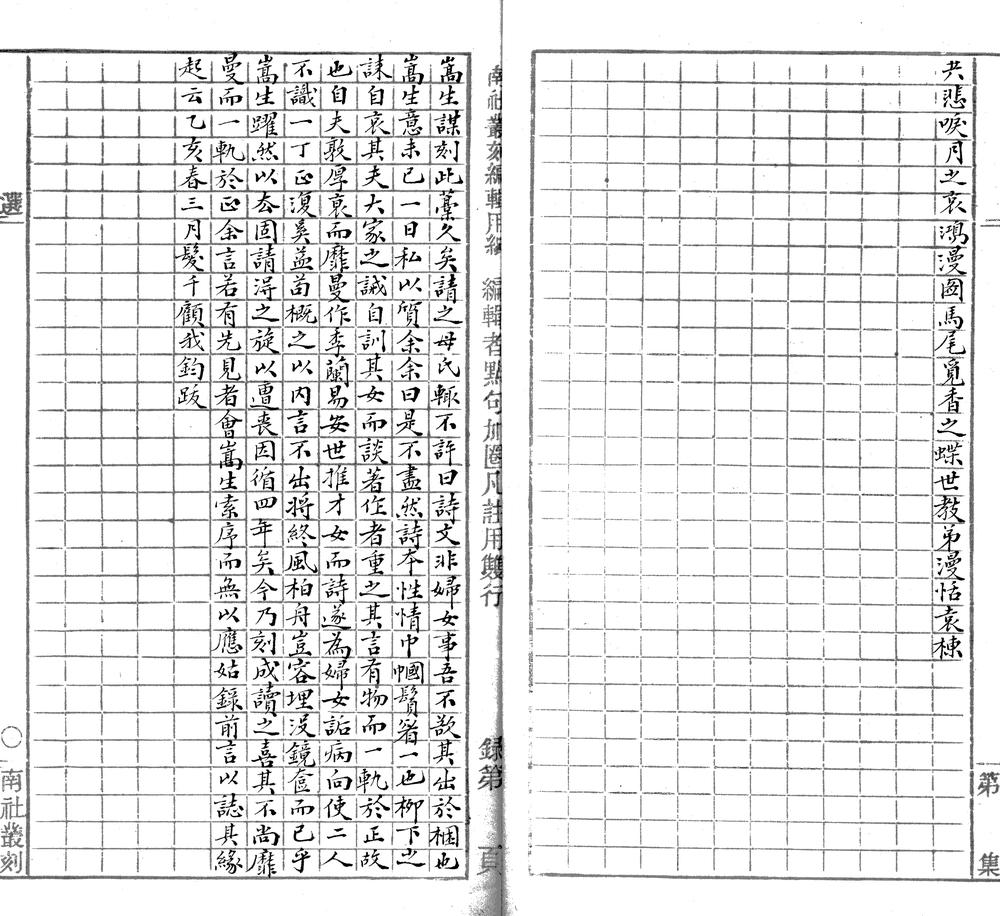 第
集
共悲唳月之哀鴻漫圖馬尾覓香之蝶世教弟漫恬袁棟
南社叢刻編輯用紙
編輯者點句加圈凡註用雙行
錄第
頁
嵩生謀刻此藁久矣請之母氏輒不許曰詩文非婦女事吾不欲其出於梱也
嵩生意未已一日私以質余余曰是不盡然詩本性情巾幗鬚眉一也柳下之
誄自哀其夫大家之誡自訓其女而談著作者重之其言有物而一軌於正故
也自夫敦厚衷而靡曼作季蘭易安世推才女而詩遂為婦女詬病向使二人
不識一丁正復奚益苟概之以內言不出將終風柏舟豈容埋沒鏡奩而已乎
嵩生躍然以去固請得之旋以遭喪因循四年矣今乃刻成讀之喜其不尚靡
曼而一軌於正余言若有先見者會嵩生索序而無以應姑錄前言以誌其緣
起云乙亥春三月髮千顧我鈞跋
選
○
南社叢刻